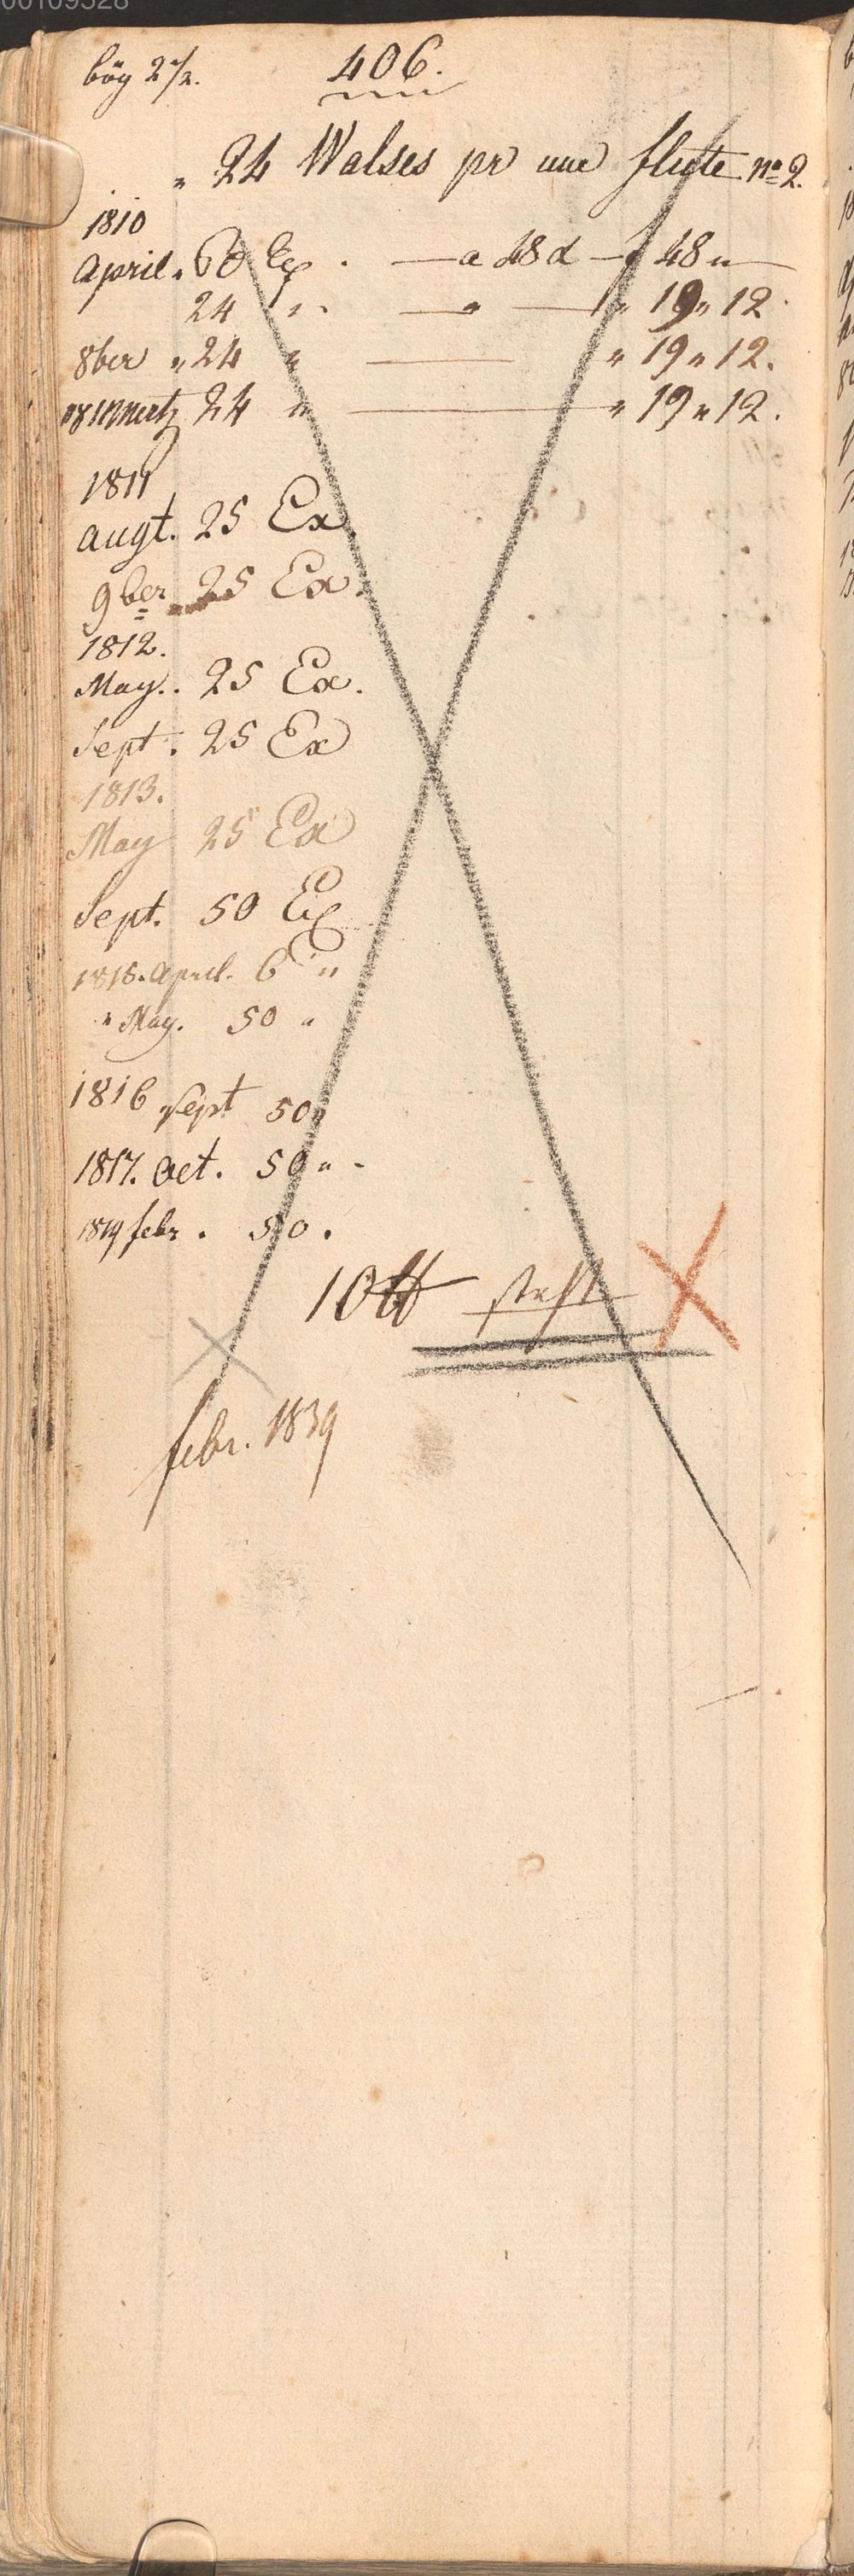 00109528
bög 2 1/2. 406.
" 24 Walses pr une flute no 2.
1810
April. 60 Ex. — a 48 d — f 48 "
24 " " — " 19 " 12.
8ber " 24 " — " 19 " 12.
1811 Mertz 24 " — " 19 " 12.
1811
augt. 25 Ex.
9ber 25 Ex.
1812.
May. 25 Ex.
Sept. 25 Ex
1813.
May 25 Ex
Sept. 50 Ex
1815. April. 6 "
" May. 50 "
1816 Sept 50 "
1817. Oct. 50 " -
1819 febr. 50.
10 ℔
febr. 1839